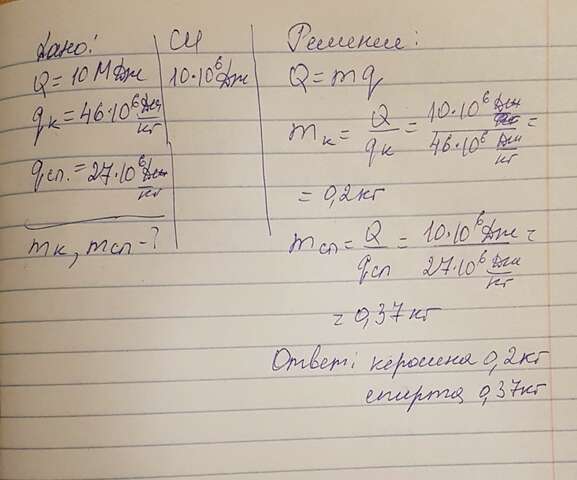 Дано:
Q = 10 МДж
qк = 46·10⁶ Дж/кг
qсп. = 27·10⁶ Дж/кг
mк, mсп - ?
СИ
10·10⁶ Дж
Решение:
Q = mq
mк = Q/qк = 10·10⁶ Дж / 46·10⁶ Дж/кг =
= 0,2 кг
mсп = Q/qсп = 10·10⁶ Дж / 27·10⁶ Дж/кг =
= 0,37 кг
Ответ: керосина 0,2 кг
спирта 0,37 кг